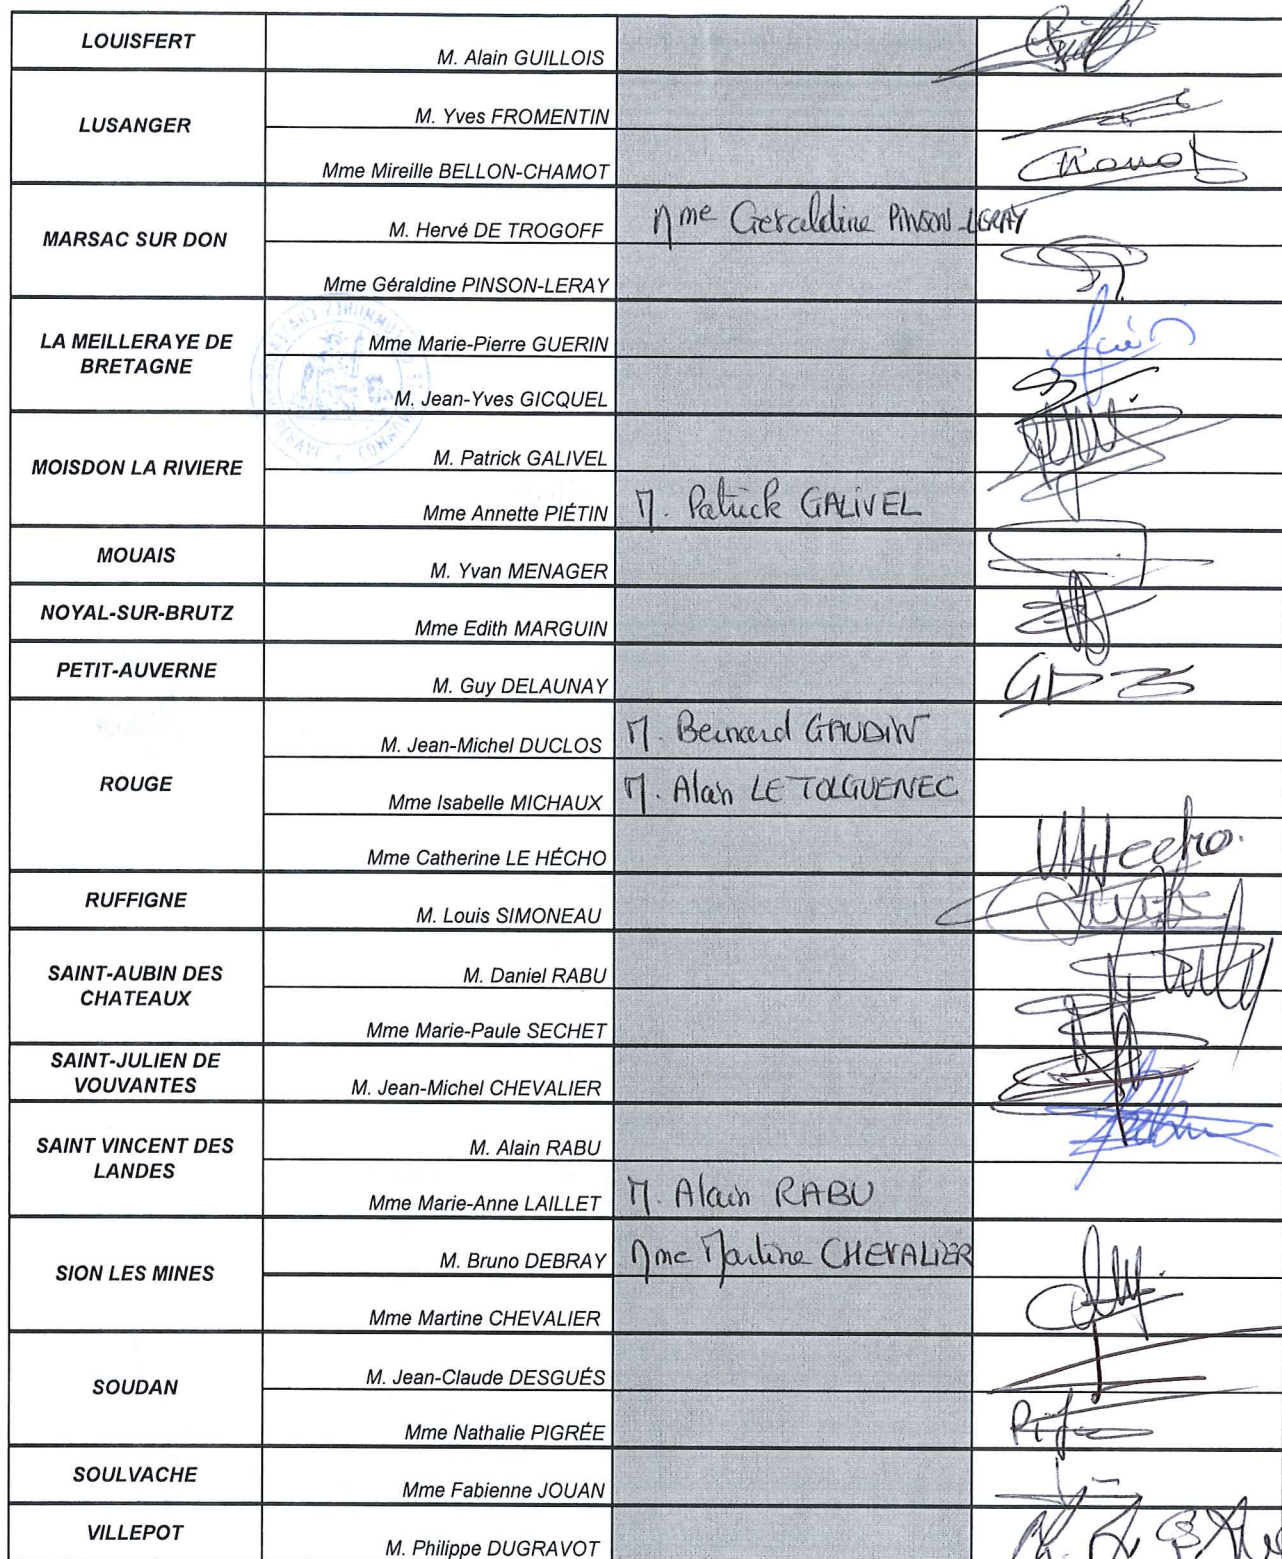 LOUISFERT
M. Alain GUILLOIS
LUSANGER
M. Yves FROMENTIN
Mme Mireille BELLON-CHAMOT
MARSAC SUR DON
M. Hervé DE TROGOFF
Mme Géraldine PINSON-LERAY
Mme Géraldine PINSON-LERAY
LA MEILLERAYE DE
BRETAGNE
Mme Marie-Pierre GUERIN
M. Jean-Yves GICQUEL
MOISDON LA RIVIERE
M. Patrick GALIVEL
Mme Annette PIÉTIN
M. Patrick GALIVEL
MOUAIS
M. Yvan MENAGER
NOYAL-SUR-BRUTZ
Mme Edith MARGUIN
PETIT-AUVERNE
M. Guy DELAUNAY
ROUGE
M. Jean-Michel DUCLOS
M. Bernard GAUDIN
Mme Isabelle MICHAUX
M. Alain LE TOLGUENEC
Mme Catherine LE HÉCHO
RUFFIGNE
M. Louis SIMONEAU
SAINT-AUBIN DES
CHATEAUX
M. Daniel RABU
Mme Marie-Paule SECHET
SAINT-JULIEN DE
VOUVANTES
M. Jean-Michel CHEVALIER
SAINT VINCENT DES
LANDES
M. Alain RABU
Mme Marie-Anne LAILLET
M. Alain RABU
SION LES MINES
M. Bruno DEBRAY
Mme Martine CHEVALIER
Mme Martine CHEVALIER
SOUDAN
M. Jean-Claude DESGUÉS
Mme Nathalie PIGRÉE
SOULVACHE
Mme Fabienne JOUAN
VILLEPOT
M. Philippe DUGRAVOT